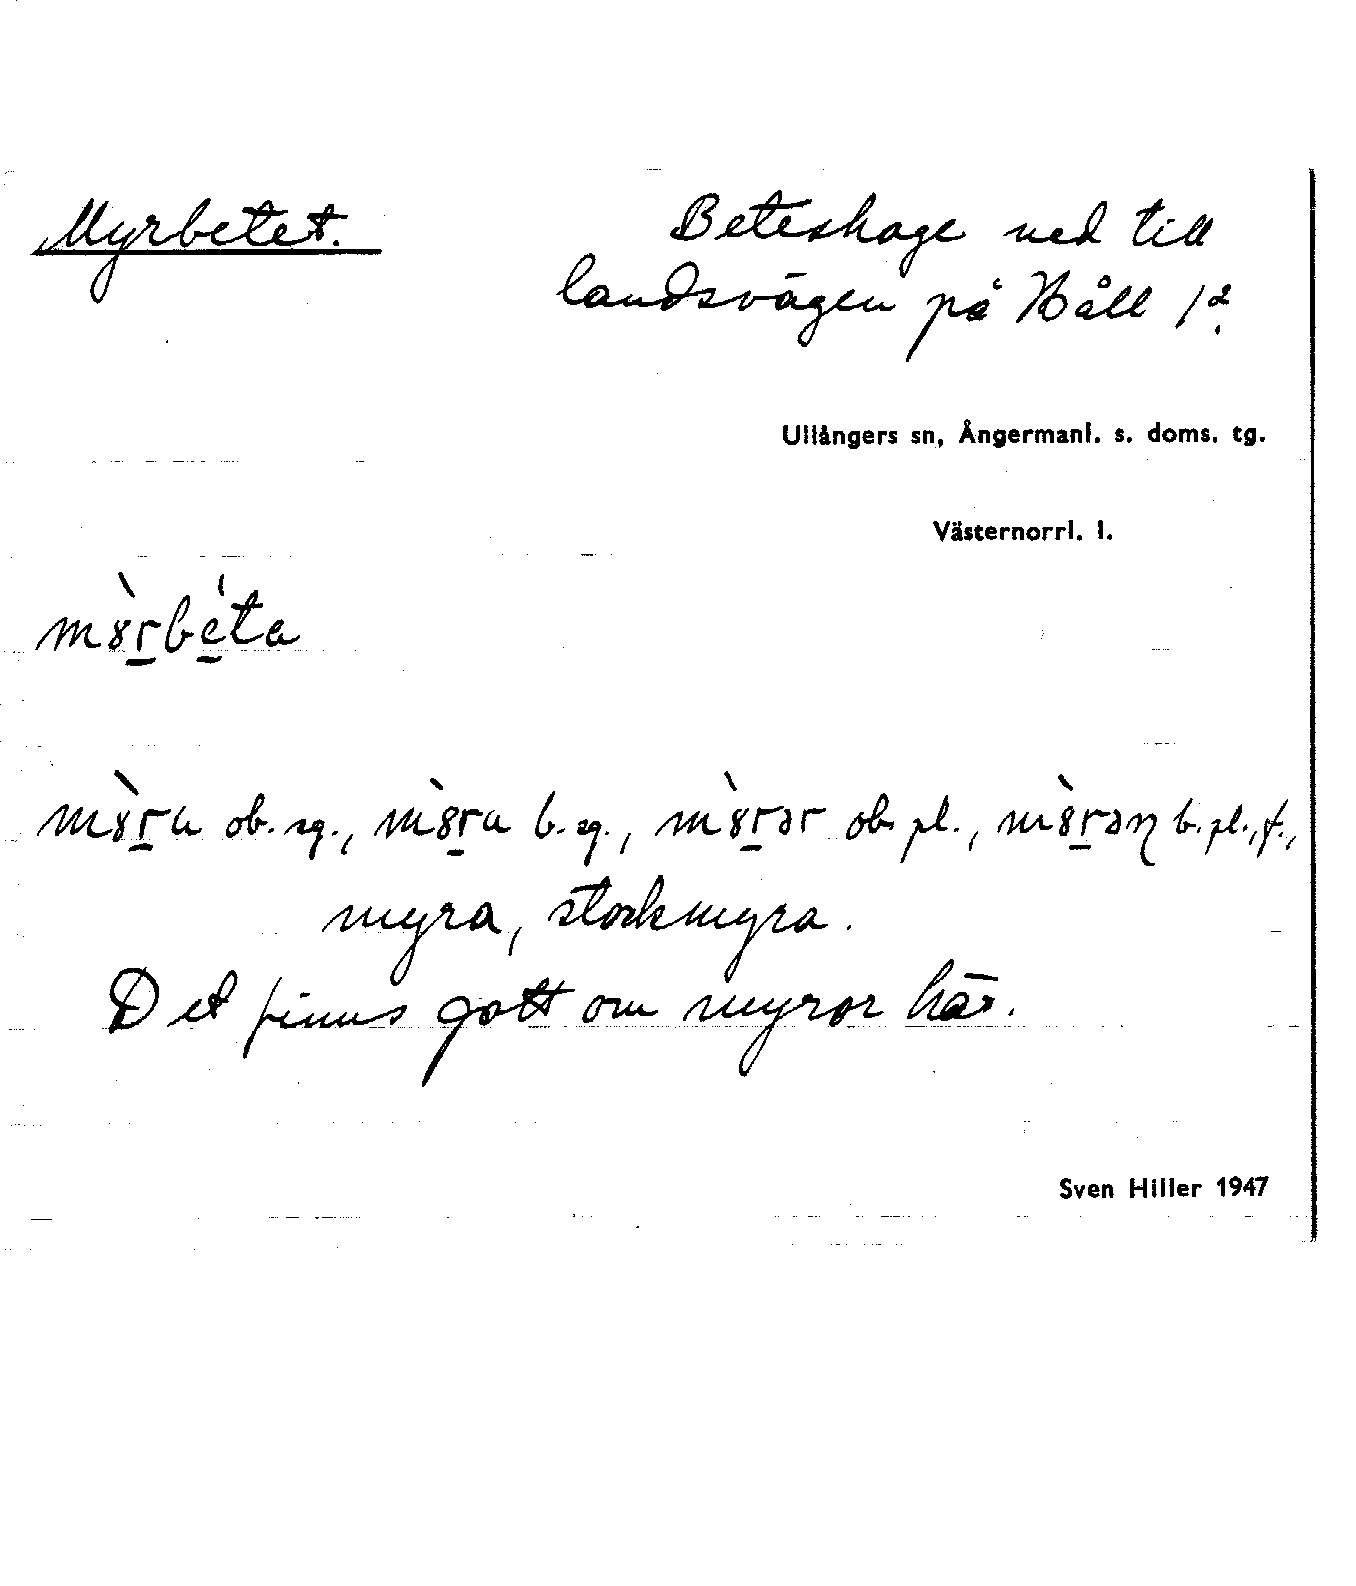 Myrbetet.
Beteshage ned till
landsvägen på Håll 1².
Ullångers sn, Ångermanl. s. doms. tg.
Västernorrl. l.
ob. sg., b. sg., ob. pl., b. pl., f.,
myra, stackmyra.
Det finns gott om myror här.
Sven Hiller 1947